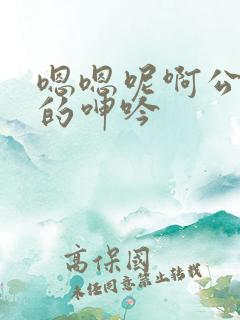 嗯嗯呢啊公
的呻吟
高保國
未经同意禁止转载